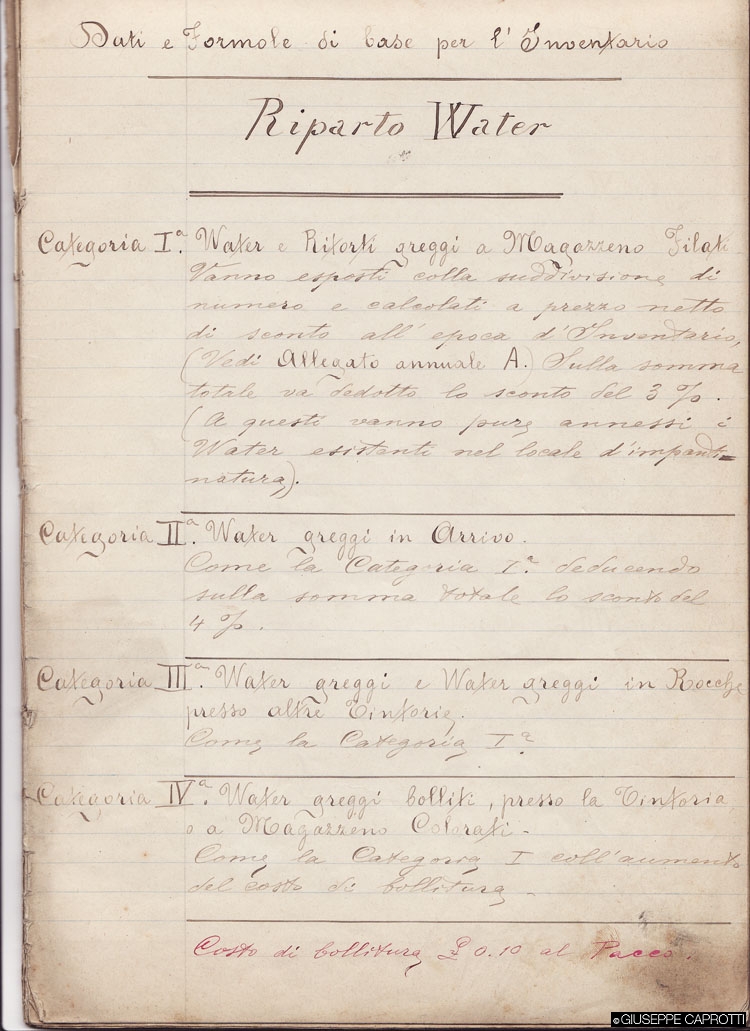 Dati e Formole di base per l' Inventario
Riparto Water
Categoria Iª. Water e Ritorti greggi a Magazzeno Filati
Vanno esposti colla suddivisione di
numero e calcolati a prezzo netto
di sconto all' epoca d'Inventario,
(Vedi Allegato annuale A.) Sulla somma
totale va dedotto lo sconto del 3 %.
(A questi vanno pure annessi i
Water esistenti nel locale d'impanti=
natura).
Categoria IIª. Water greggi in Arrivo.
Come la Categoria Iª. deducendo
sulla somma totale lo sconto del
4 %.
Categoria IIIª. Water greggi e Water greggi in Rocche
presso altre Tintorie.
Come la Categoria Iª
Categoria IVª. Water greggi bolliti, presso la Tintoria
o a Magazzeno Colorati -
Come la Categoria I coll'aumento
del costo di bollitura -
Costo di bollitura £ 0.10 al Pacco.
©GIUSEPPE CAPROTTI